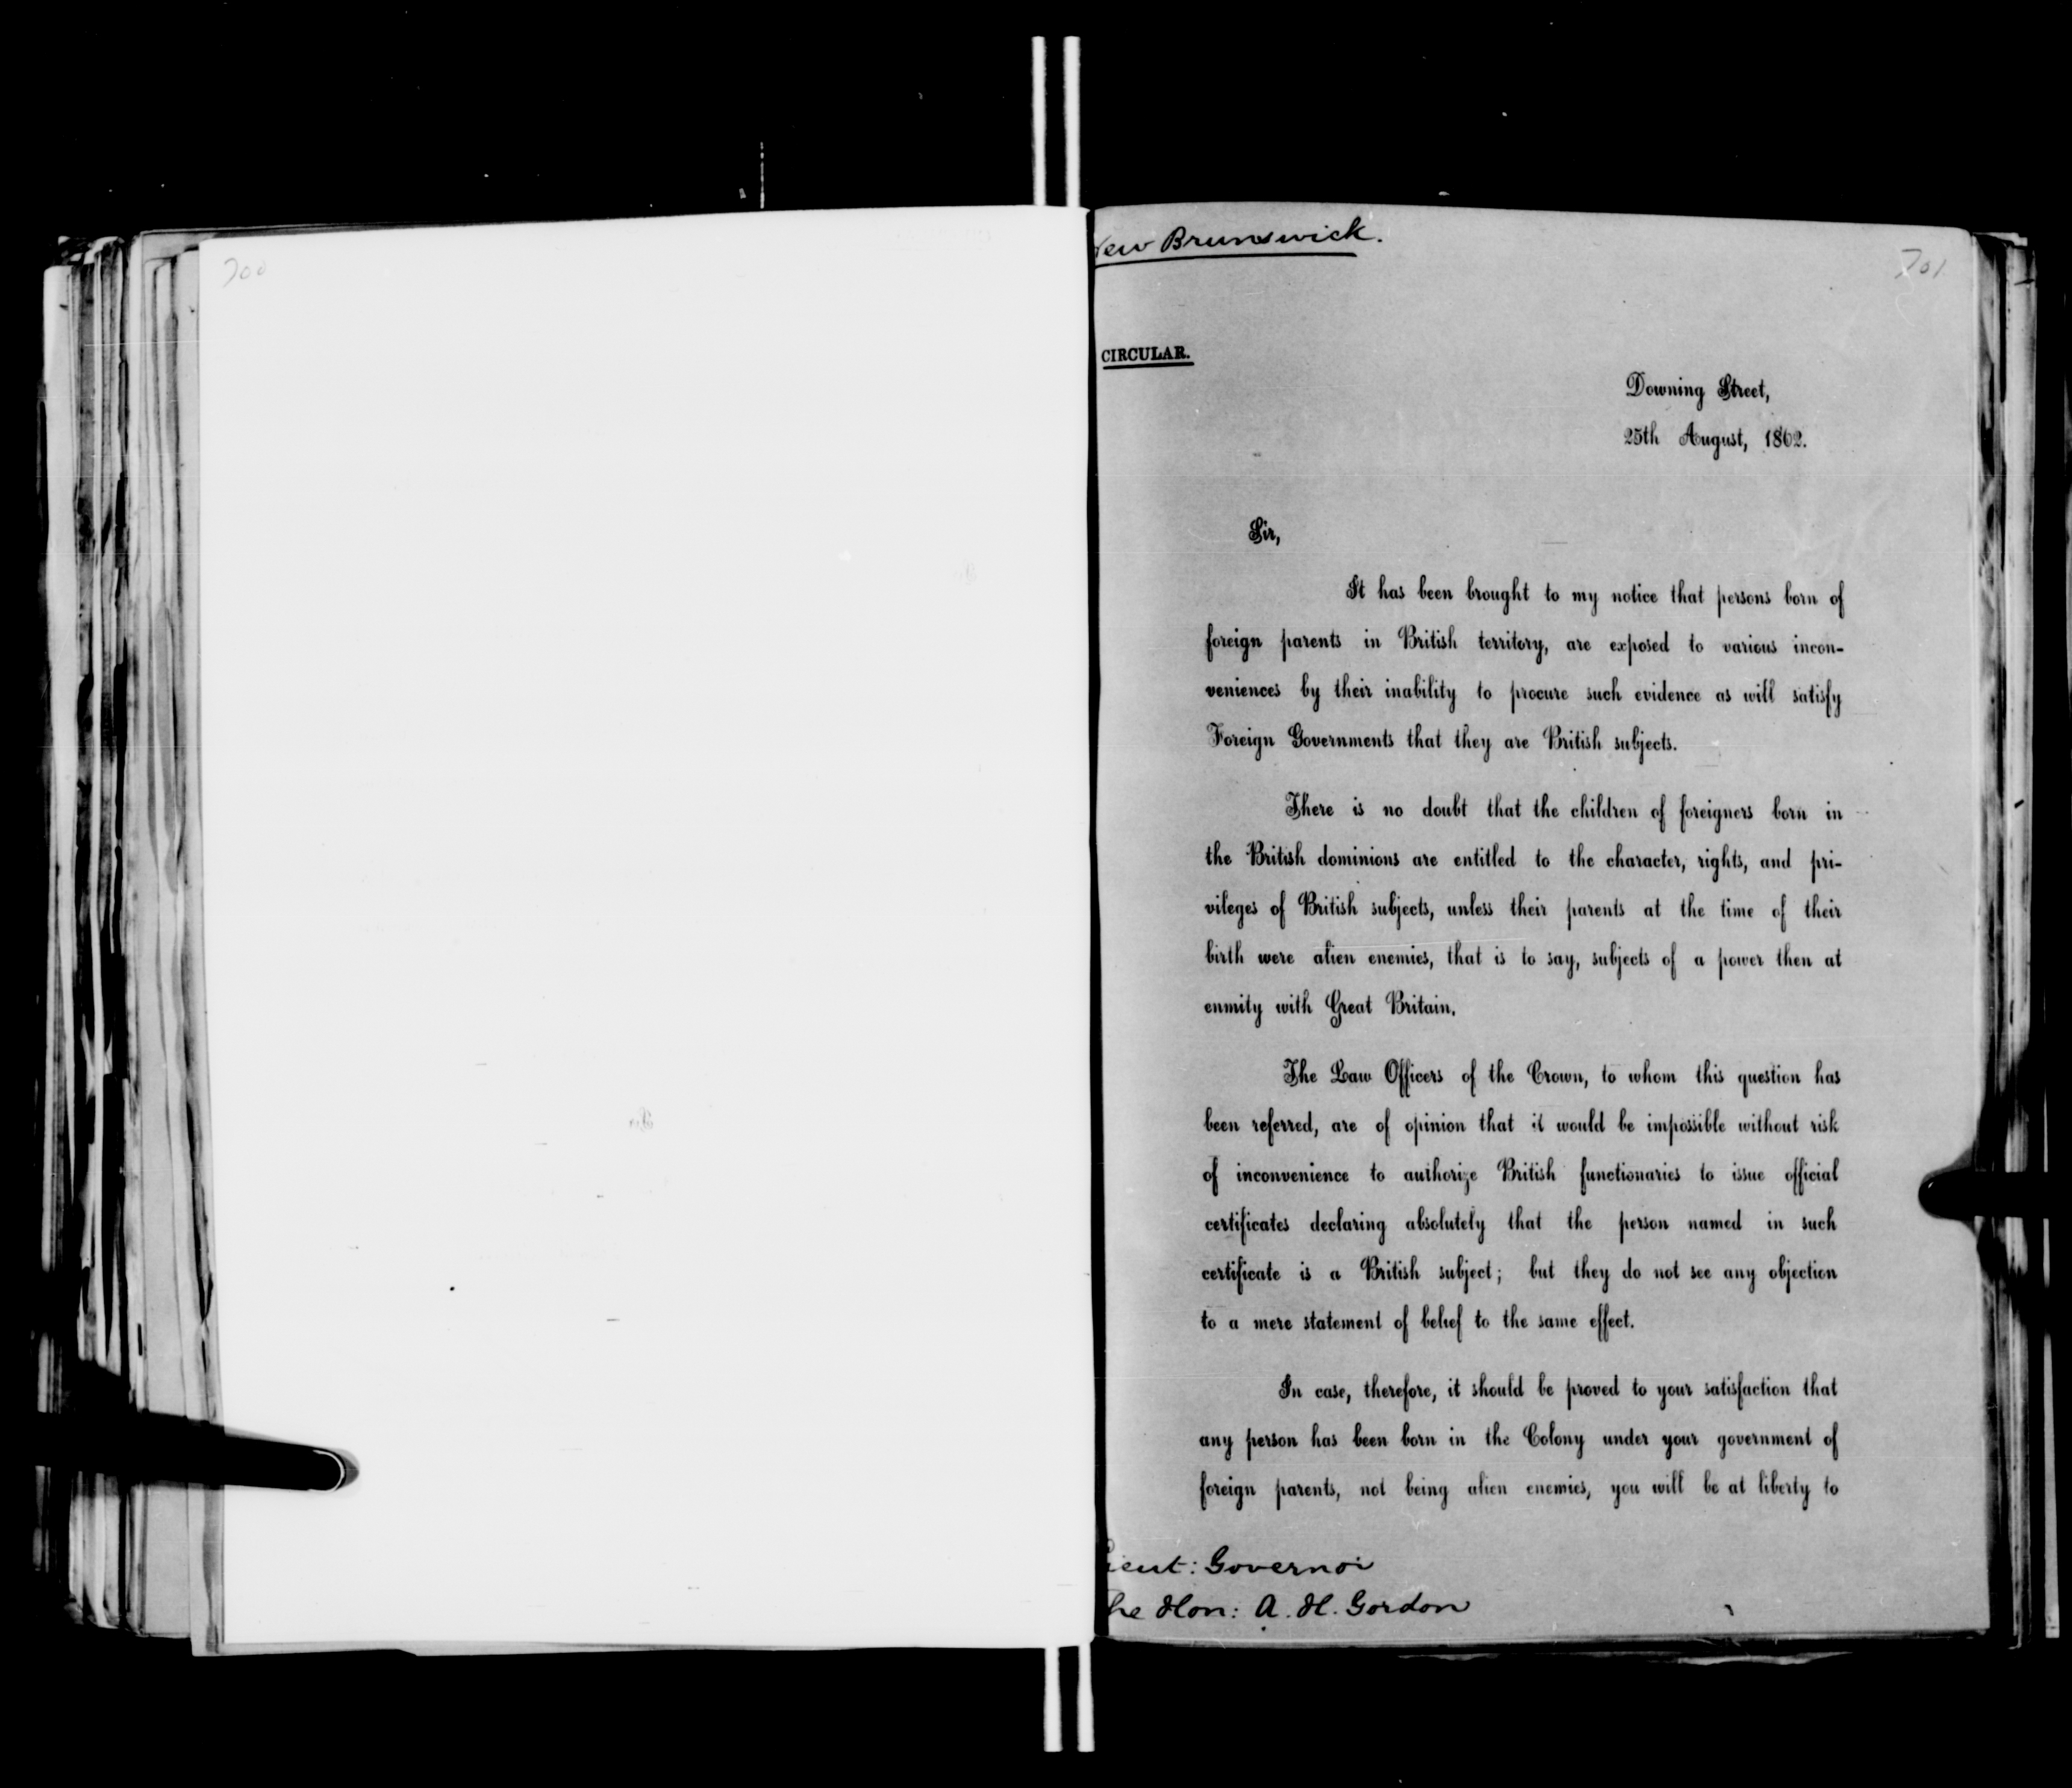 700
New Brunswick.
701
CIRCULAR.
Downing Street,
25th August, 1862.
Sir,
It has been brought to my notice that persons born of
foreign parents in British territory, are exposed to various incon-
veniences by their inability to procure such evidence as will satisfy
Foreign Governments that they are British subjects.
There is no doubt that the children of foreigners born in
the British dominions are entitled to the character, rights, and pri-
vileges of British subjects, unless their parents at the time of their
birth were alien enemies, that is to say, subjects of a power then at
enmity with Great Britain.
The Law Officers of the Crown, to whom this question has
been referred, are of opinion that it would be impossible without risk
of inconvenience to authorize British functionaries to issue official
certificates declaring absolutely that the person named in such
certificate is a British subject; but they do not see any objection
to a mere statement of belief to the same effect.
In case, therefore, it should be proved to your satisfaction that
any person has been born in the Colony under your government of
foreign parents, not being alien enemies, you will be at liberty to
Lieut: Governor
The Hon: A. H. Gordon